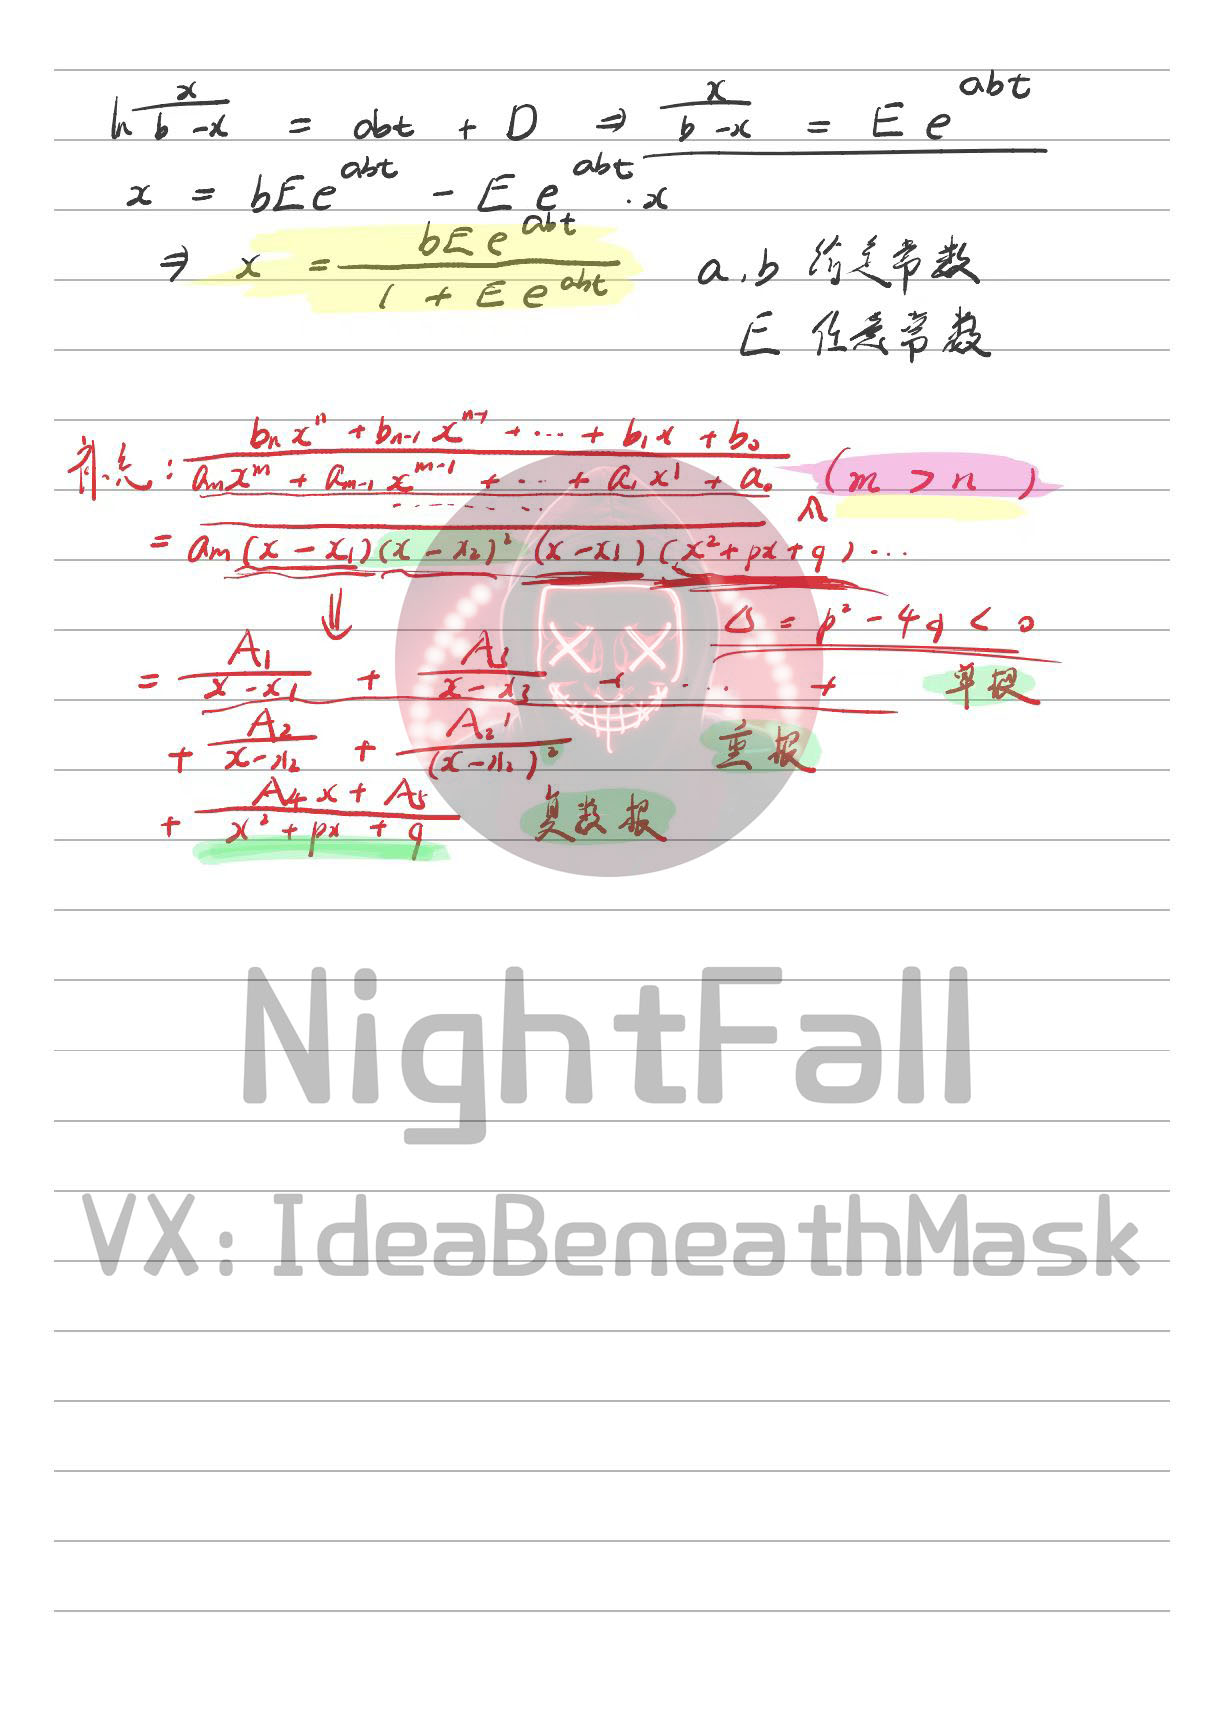 ln x/(b-x) = abt + D ⇒ x/(b-x) = E e^{abt}
x = bE e^{abt} - E e^{abt} · x
⇒ x = bE e^{abt} / (1 + E e^{abt}) a, b 给定常数
E 任意常数
补点: (b_n x^n + b_{n-1} x^{n-1} + ··· + b_1 x + b_0) / (a_m x^m + a_{m-1} x^{m-1} + ··· + a_1 x^1 + a_0) (m > n)
= ······ / a_m (x - x_1)(x - x_2)^2 (x - x_1)(x^2 + px + q) ···
⇓ Δ = p^2 - 4q < 0
= A_1/(x - x_1) + A_3/(x - x_3) + ··· + 单根
+ A_2/(x - x_2) + A_2'/(x - x_2)^2 重根
+ (A_4 x + A_5)/(x^2 + px + q) 复数根
NightFall
VX: IdeaBeneathMask